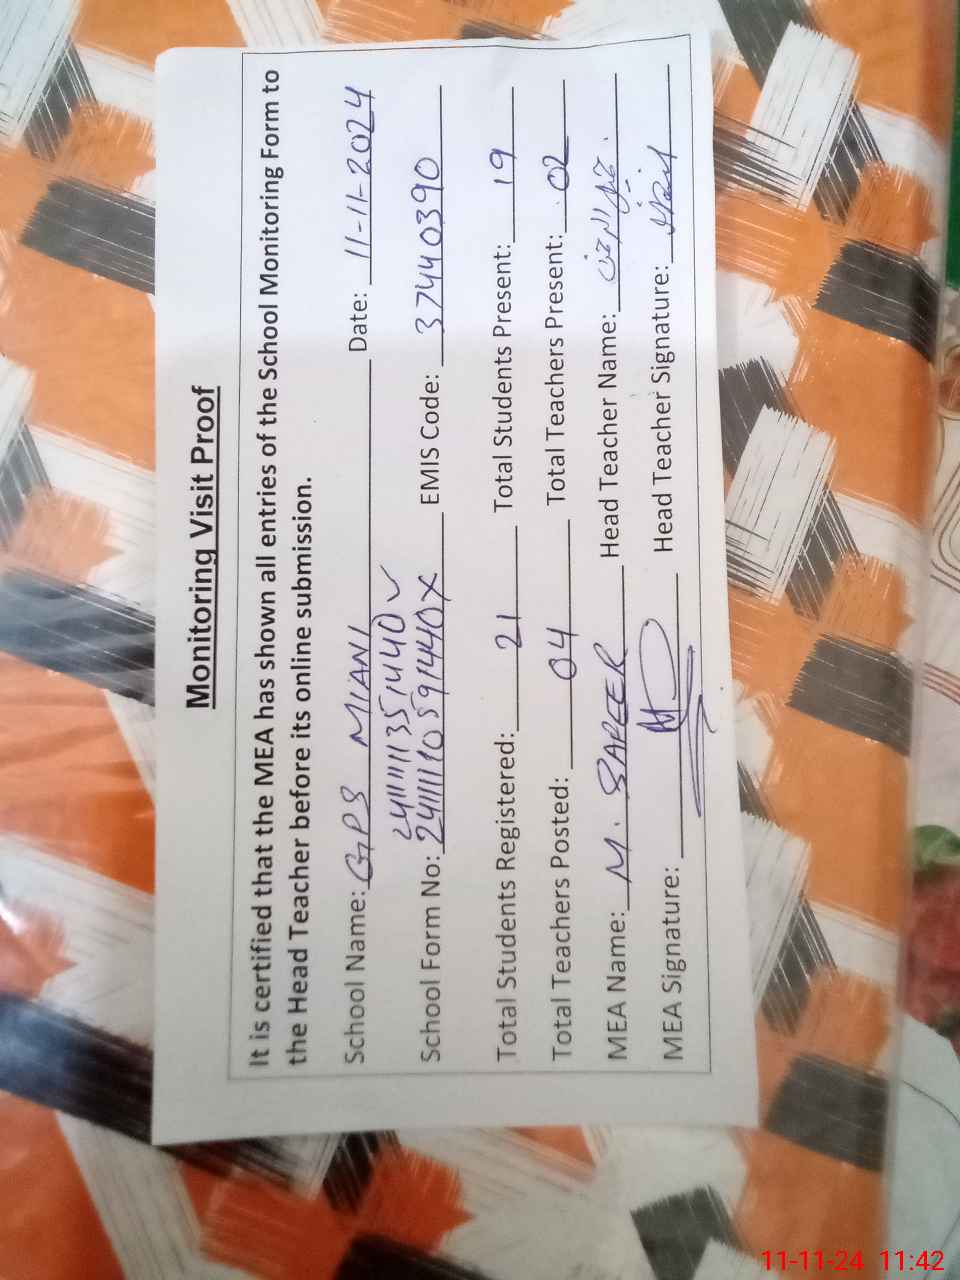 Monitoring Visit Proof
It is certified that the MEA has shown all entries of the School Monitoring Form to
the Head Teacher before its online submission.
School Name: GPS MIANI Date: 11-11-2024
2411111351440 ✓
School Form No: 24111110591440 X EMIS Code: 37440390
Total Students Registered: 21 Total Students Present: 19
Total Teachers Posted: 04 Total Teachers Present: 02
MEA Name: M. SAFEER Head Teacher Name:
MEA Signature: Head Teacher Signature:
11-11-24 11:42